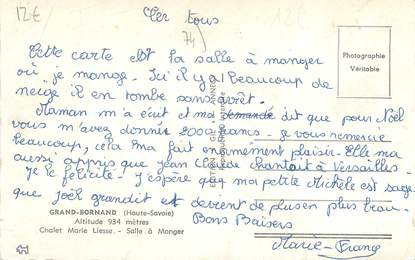 12€
Cher tous
74)
Cette carte est la salle à manger
où je mange. Ici il y a beaucoup de
neige il en tombe sans arrêt.
Maman m'a écrit et ma demandé dit que pour Noël
vous m'avez donnés 2000 francs. Je vous remercie
beaucoup, cela m'a fait enormément plaisir. Elle ma
aussi appris que Jean Claude chantait à Versailles.
Je le félicite. J'espère que ma petite Michèle est sage
que Joël grandit et devient de plus en plus beau.
Bons Baisers
Marie-France
Photographie
Véritable
GRAND-BORNAND (Haute-Savoie)
Altitude 934 mètres
Chalet Marie Liesse. - Salle à Manger